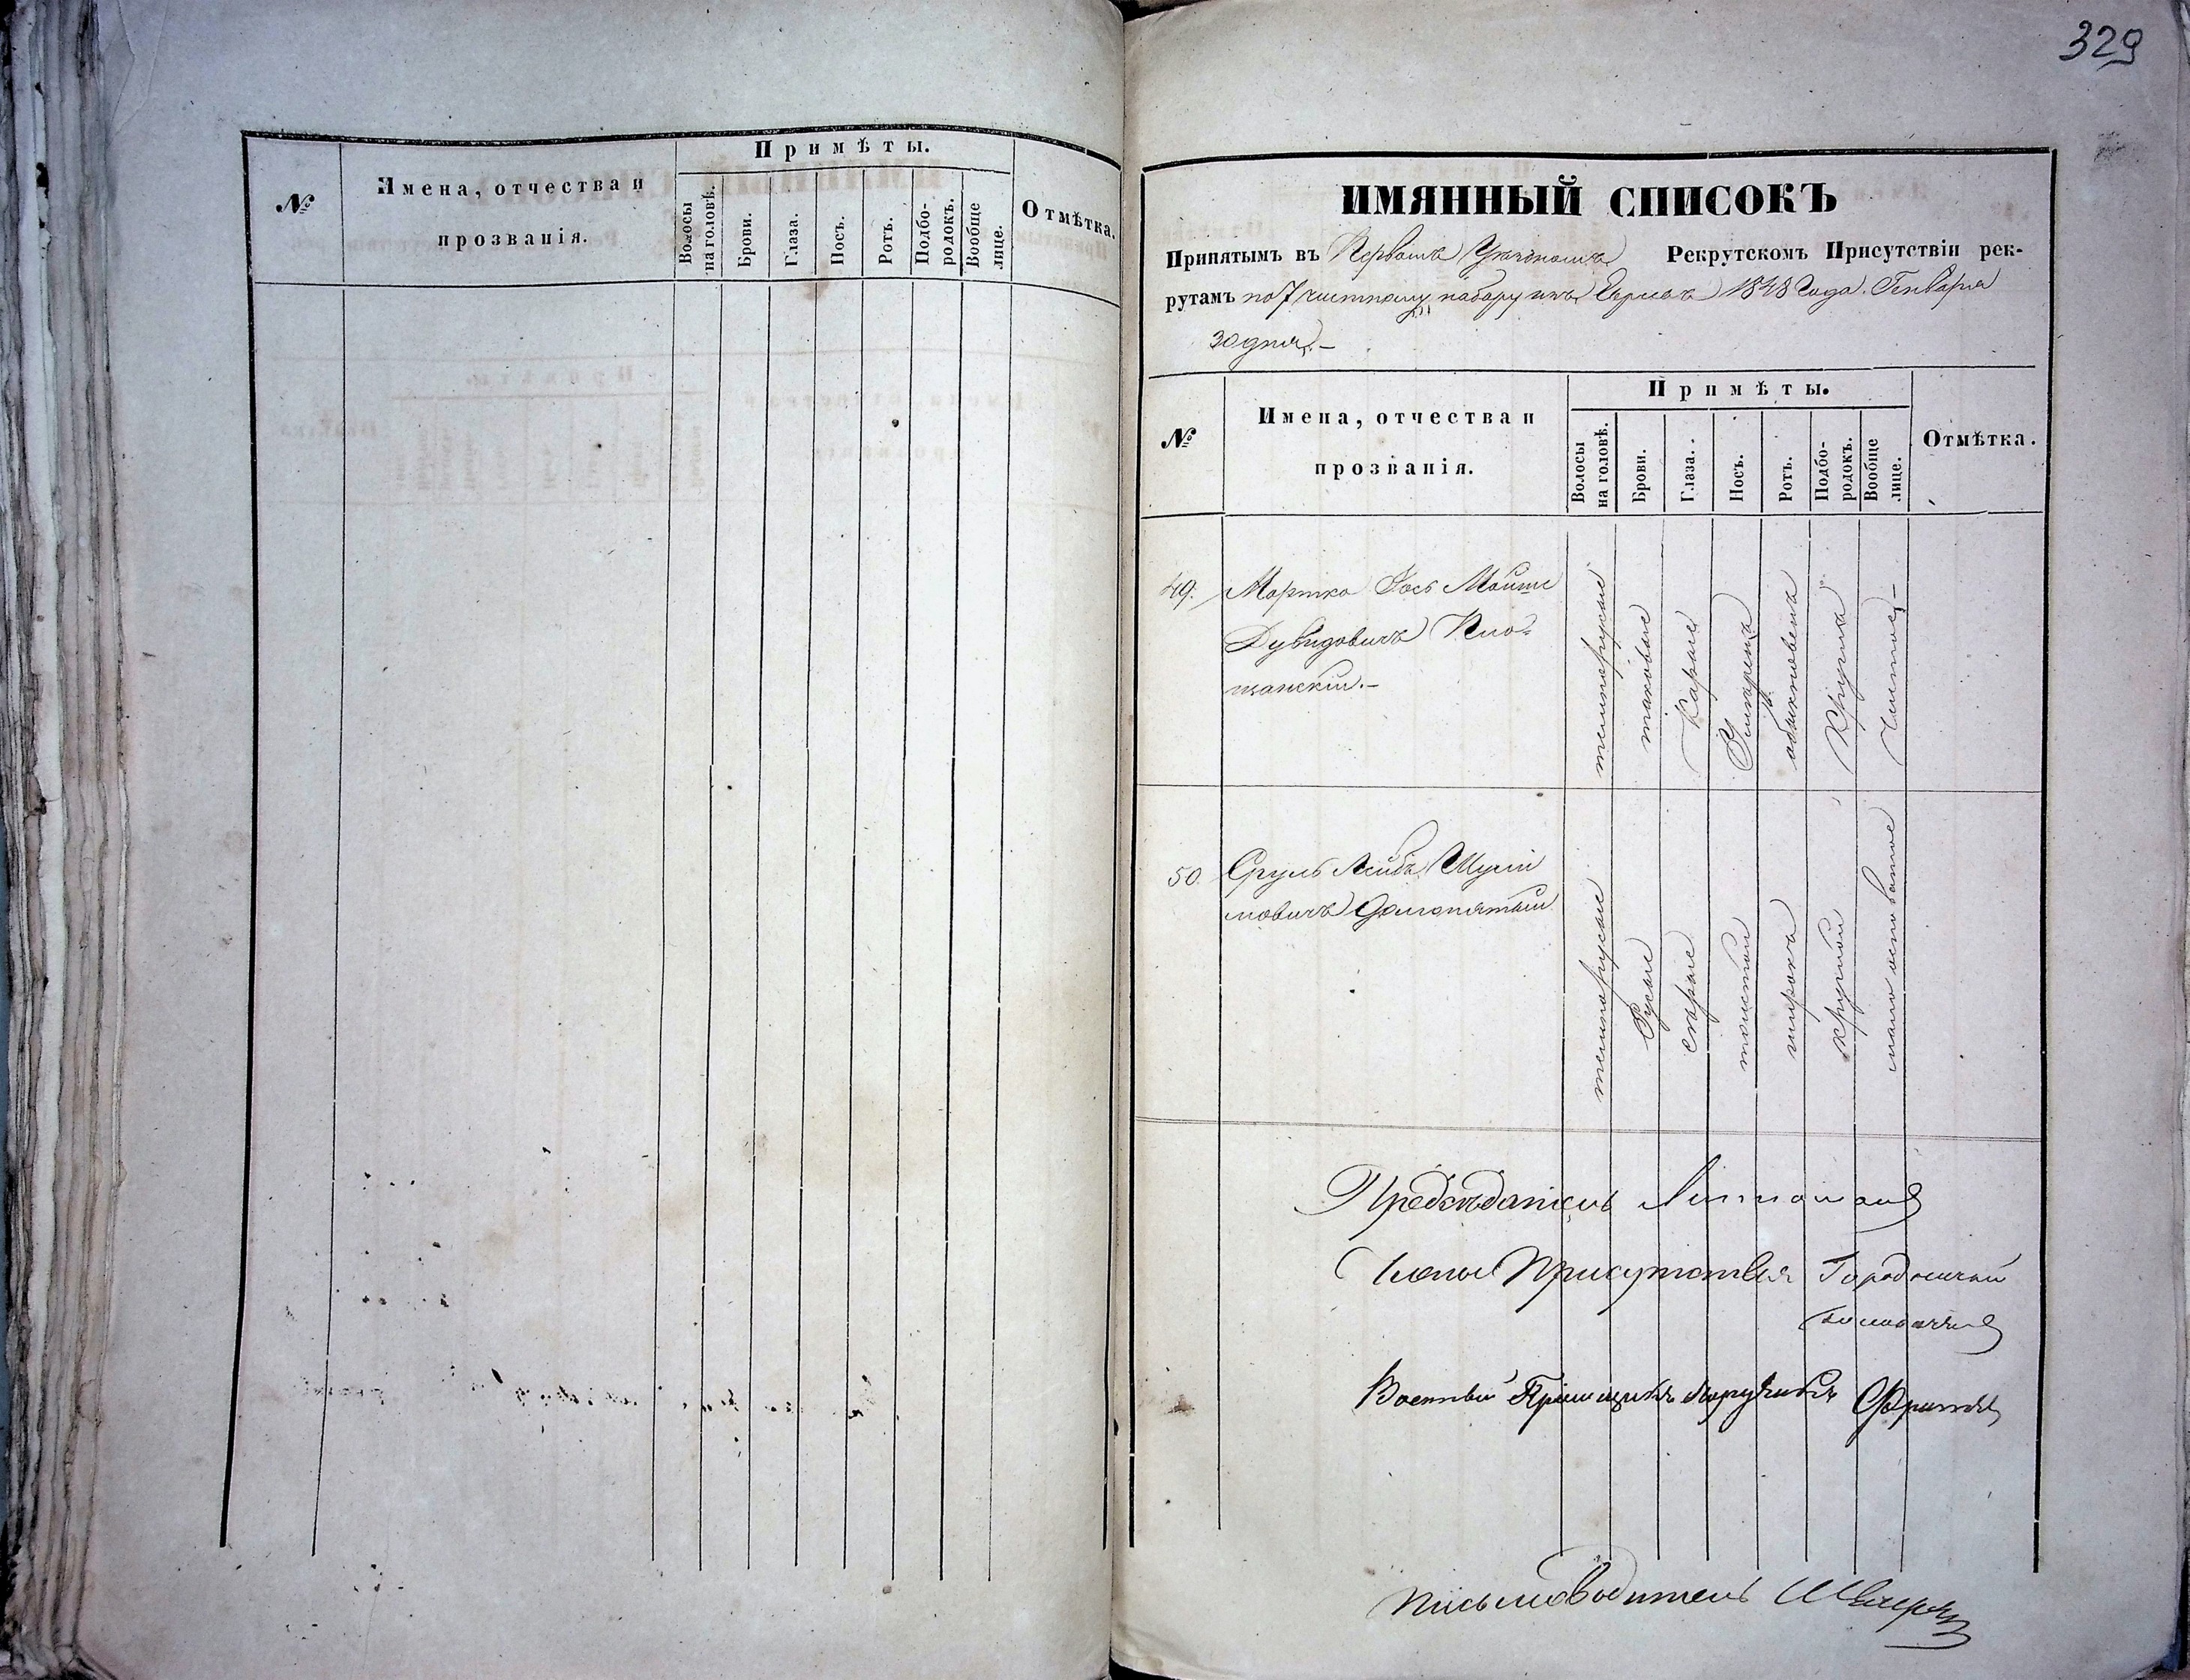 №
Имена, отчества и
прозванія.
Примѣты.
Волосы
на головѣ.
Брови.
Глаза.
Носъ.
Ротъ.
Подбо-
родокъ.
Вообще
лице.
Отмѣтка.
329
ИМЯННЫЙ СПИСОКЪ
Принятымъ въ Первомъ Рекрутскомъ Присутствіи рек-
рутамъ по 7 частному набору изъ Евреевъ 1848 Года. Генваря
30 дня.-
№
Имена, отчества и
прозванія.
Примѣты.
Волосы
на головѣ.
Брови.
Глаза..
Носъ.
Ротъ.
Подбо-
родокъ.
Вообще
лице.
Отмѣтка.
49. Мортко Іось Мошке
Дувидовичъ
темнорусые
таковые
Карые
обыкновенъ
Кругла
Чистое -
50. Сруль Лейбъ
темнорусые
Русые
серые
толстой
широкъ
круглой
мало осповатое
Председатель
Члены Присутствія Городничій
Военный Пріемщикъ Поручикъ
Письмоводитель